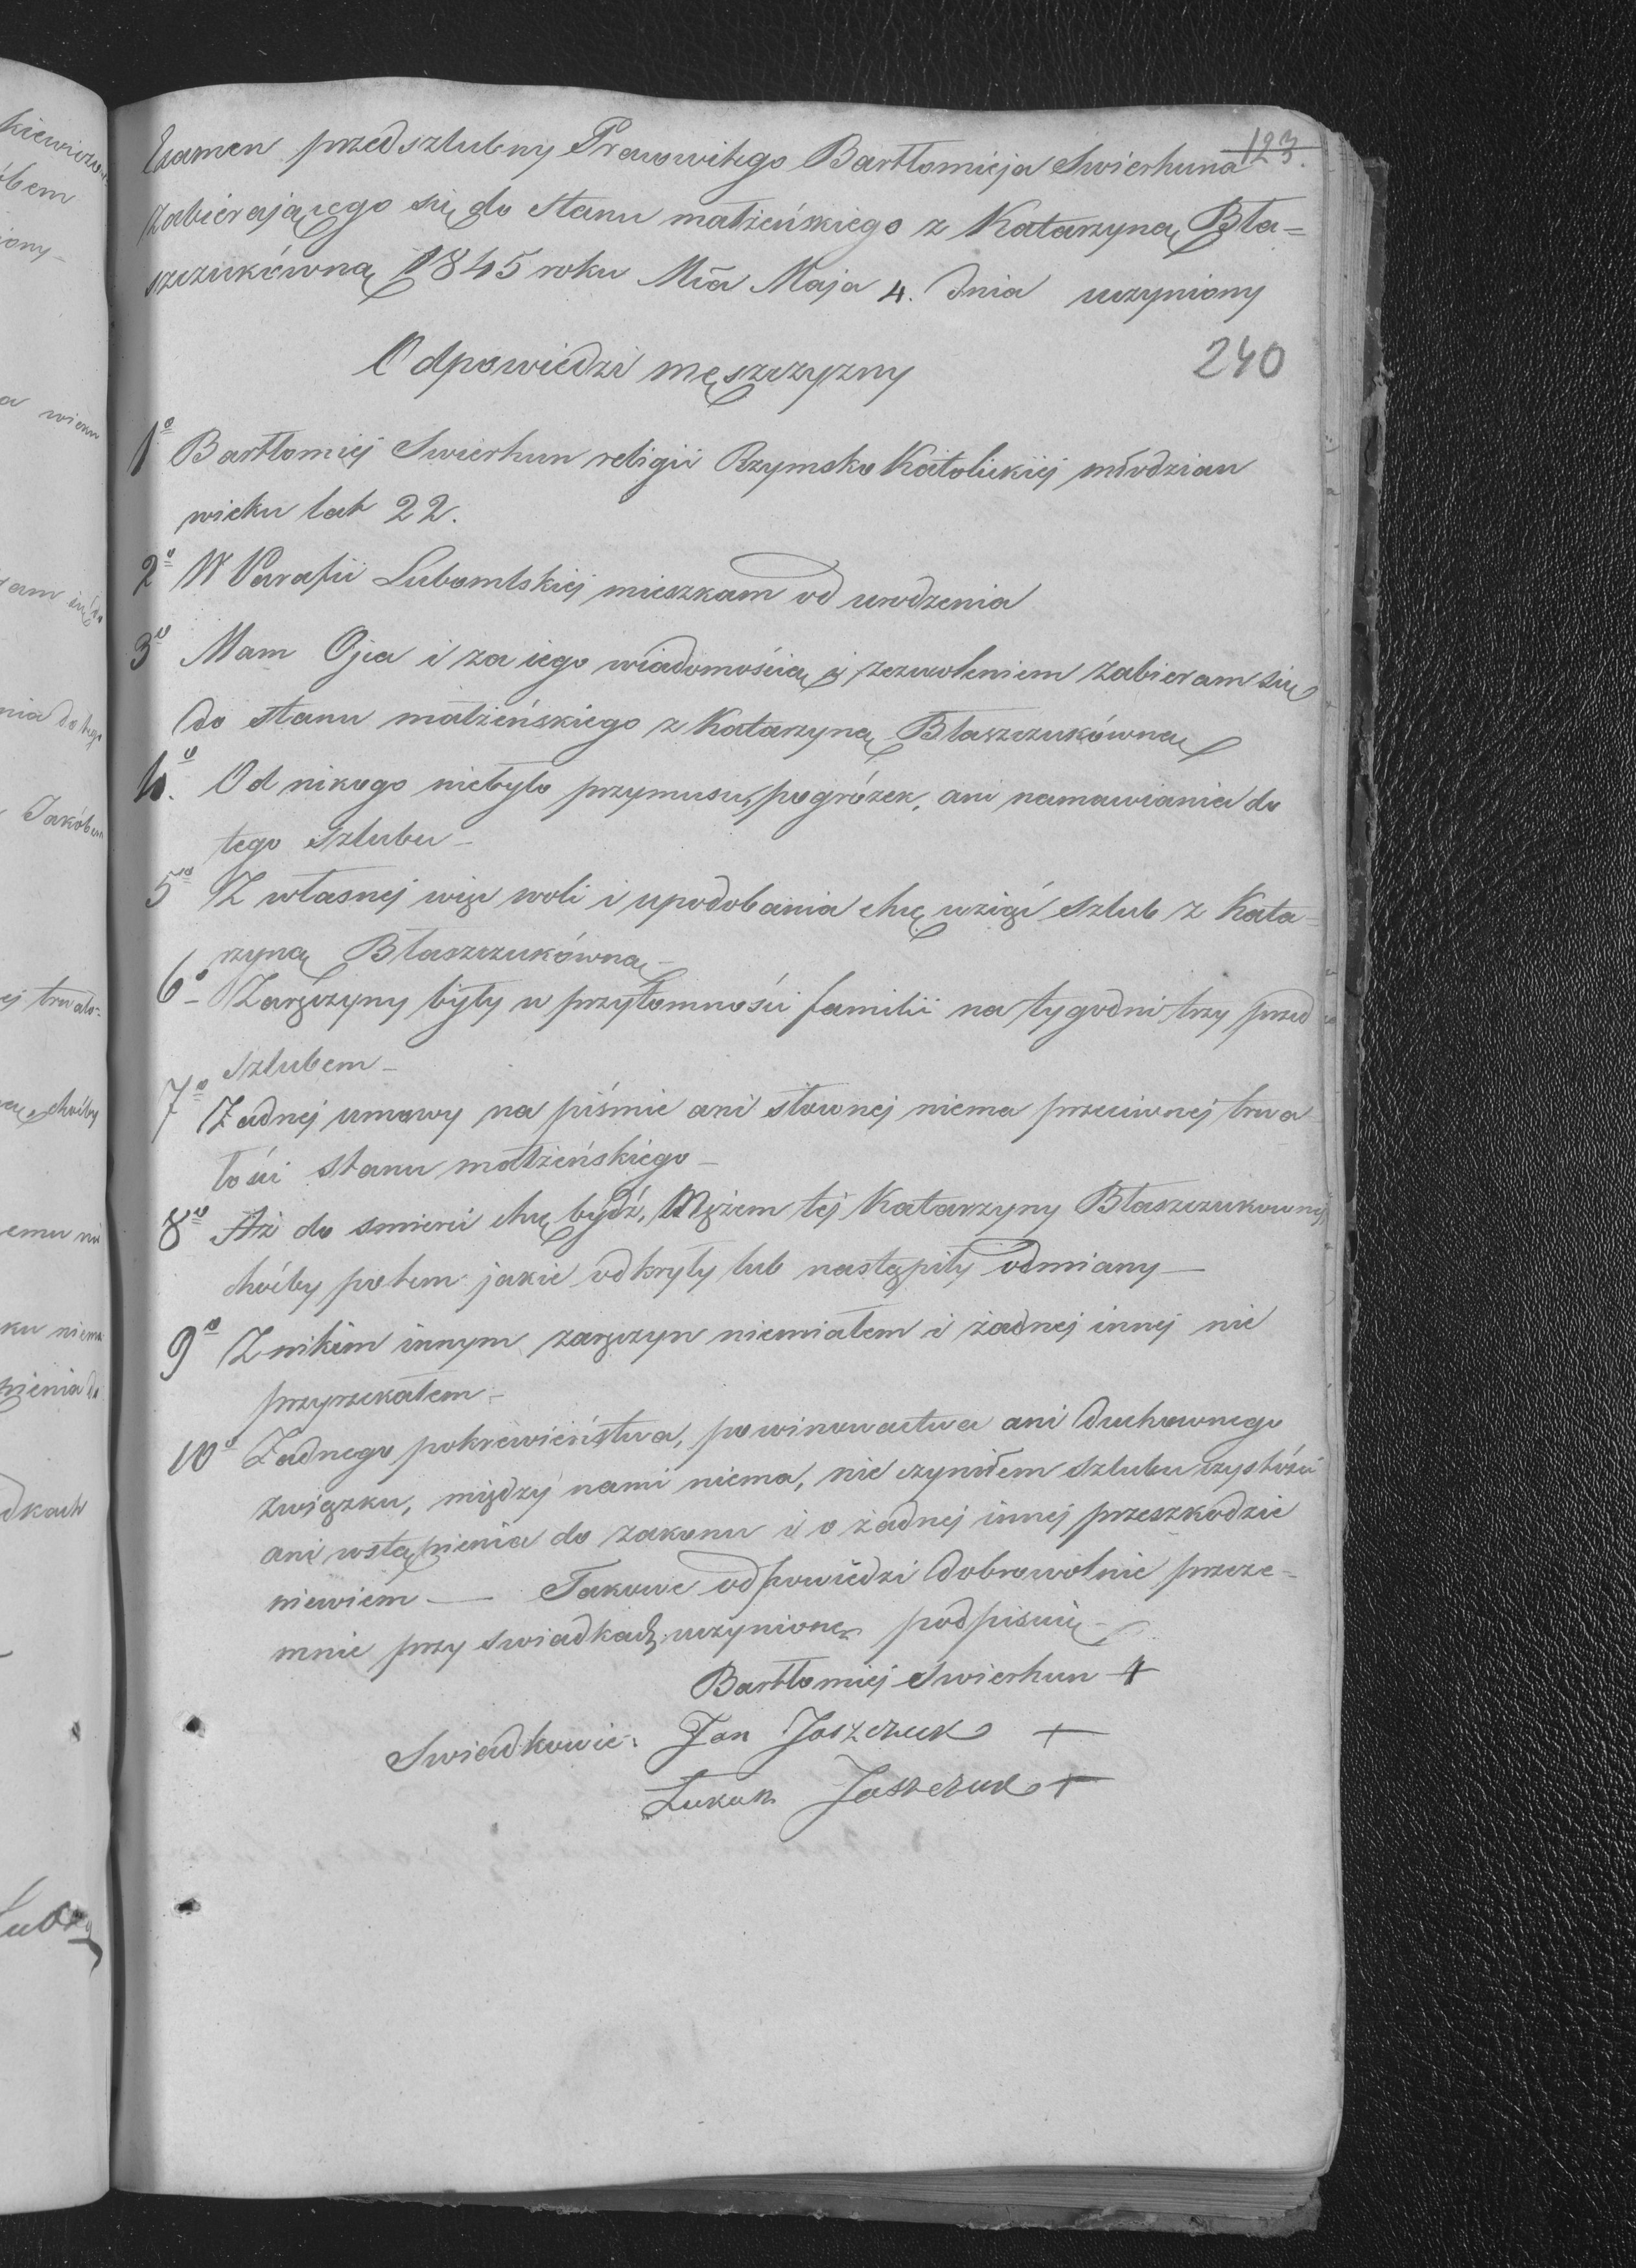 Examen przedszlubny Prawowitego Bartłomieja Swierhuna 123.
Zabierającego się do stanu małżeńskiego z Katarzyną Bła=
szczukówną 1845 roku Mca Maja 4. Dnia uczyniony
Odpowiedzi męszczyzny 240
1o Bartłomiej Swierhun religii Rzymsko Katolickiej młodzian
wieku lat 22.
2o W Parafii Lubomlskiej mieszkam od urodzenia
3o Mam Ojca i za iego wiadomością i zezwoleniem zabieram się
do stanu małżeńskiego z Katarzyną Błaszczukówną
4o. Od nikogo niebyło przymusu, pogróżek, ani namawiania do
tego szlubu –
5o Z własnej więc woli i upodobania chcę wziąć szlub z Kata=
rzyną Błaszczukówną –
6o Zaręczyny były w przytomności familii na tygodni trzy przed
szlubem –
7o Żadnej umowy na piśmie ani słownej niema przeciwnej trwa
łości stanu małżeńskiego –
8o Aż do smierci chcę bydź, Mężem tej Katarzyny Błaszczukownej
choćby potem jakie odkryły lub nastąpiły odmiany –
9o Z nikim innym zaręczyn niemiałem i żadnej innej nie
przyrzekałem –
10o Żadnego pokrewieństwa, powinowactwa ani Duchownego
związku, między nami niema, nie czyniłem szlubu czystości
ani wstąpienia do zakonu i o żadnej innej przeszkodzie
niewiem – Takowe odpowiedzi dobrowolnie przeze=
mnie przy swiadkach uczynione podpisuię –
Bartłomiej Swierhun +
Swiadkowie: Jan Jaszczuk +
Łukasz Jaszczuk +